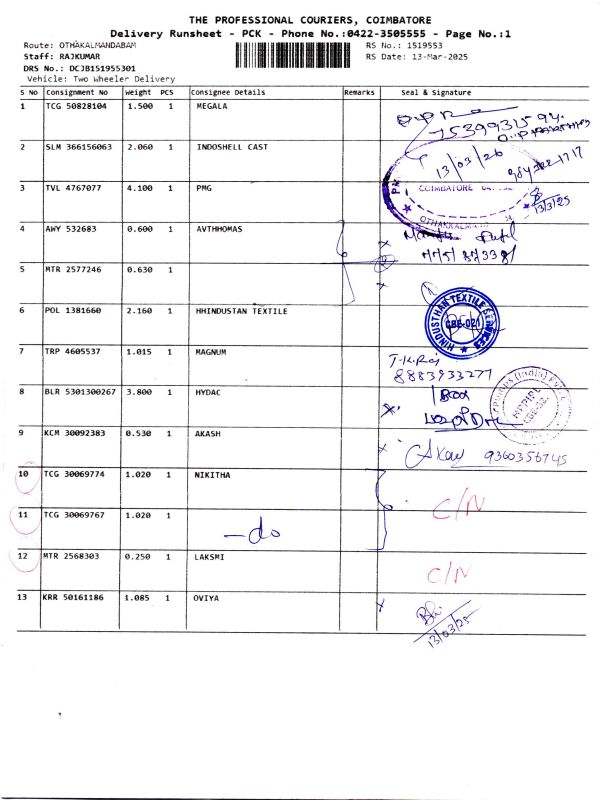 THE PROFESSIONAL COURIERS, COIMBATORE
Delivery Runsheet - PCK - Phone No.:0422-3505555 - Page No.:1
Route: OTHAKALMANDABAM RS No.: 1519553
Staff: RAJKUMAR RS Date: 13-Mar-2025
DRS No.: DCJB151955301
Vehicle: Two Wheeler Delivery
S No Consignment No Weight PCS Consignee Details Remarks Seal & Signature
1 TCG 50828104 1.500 1 MEGALA
2 SLM 366156063 2.060 1 INDOSHELL CAST
13/03/26
3 TVL 4767077 4.100 1 PMG
COIMBATORE
13/3/25
4 AWY 532683 0.600 1 AVTHHOMAS
5 MTR 2577246 0.630 1
6 POL 1381660 2.160 1 HHINDUSTAN TEXTILE
HINDUSTHAN TEXTILE SERVICES
CBE-021
7 TRP 4605537 1.015 1 MAGNUM
8883933277
8 BLR 5301300267 3.800 1 HYDAC
1 Box
9 KCM 30092383 0.530 1 AKASH
9360356745
10 TCG 30069774 1.020 1 NIKITHA
C/N
11 TCG 30069767 1.020 1
-do
12 MTR 2568303 0.250 1 LAKSMI
C/N
13 KRR 50161186 1.085 1 OVIYA
13/03/25